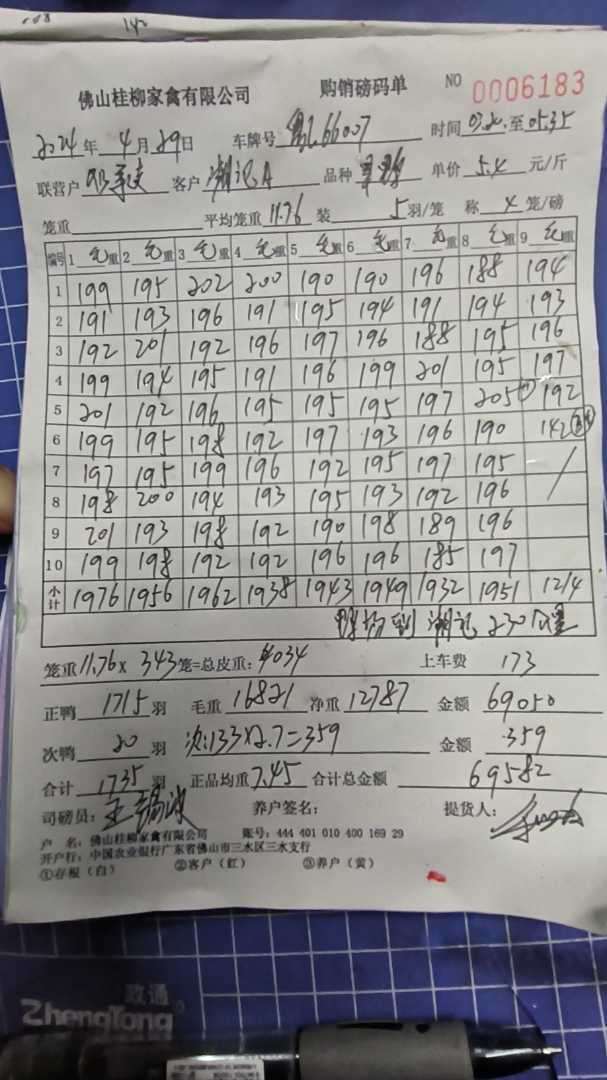 140
佛山桂柳家禽有限公司 购销磅码单 NO 0006183
2024年 4月29日 车牌号 66007 时间 03.20.至05.35
联营户 客户 湘记A 品种 单价 5.4 元/斤
笼重 平均笼重 11.76 装 5 羽/笼 称 4 笼/磅
编号 1 毛重 2 毛重 3 毛重 4 毛重 5 毛重 6 毛重 7 毛重 8 毛重 9 毛重
1 199 195 202 200 190 190 196 188 194
2 191 193 196 191 195 194 191 194 193
3 192 201 192 196 197 196 188 195 196
4 199 194 195 191 196 199 201 195 197
5 201 192 196 195 195 195 197 205 192
6 199 195 198 192 197 193 196 190 142
7 197 195 199 196 192 195 197 195 /
8 198 200 194 193 195 193 192 196
9 201 193 198 192 190 198 189 196
10 199 198 192 192 196 196 185 197
小计 1976 1956 1962 1938 1943 1949 1932 1951 1214
到 湘记 230公里
笼重11.76x 343笼=总皮重: 4034 上车费 173
正鸭 1715 羽 毛重 16821 净重 12787 金额 69050
次鸭 20 羽 次:133X2.7=359 金额 359
合计 1735 羽 正品均重 7.45 合计总金额 69582
司磅员: 养户签名: 提货人:
户 名: 佛山桂柳家禽有限公司 账号: 444 401 010 400 169 29
开户行: 中国农业银行广东省佛山市三水区三水支行
①存根(白) ②客户(红) ③养户(黄)
政通
ZhengTong